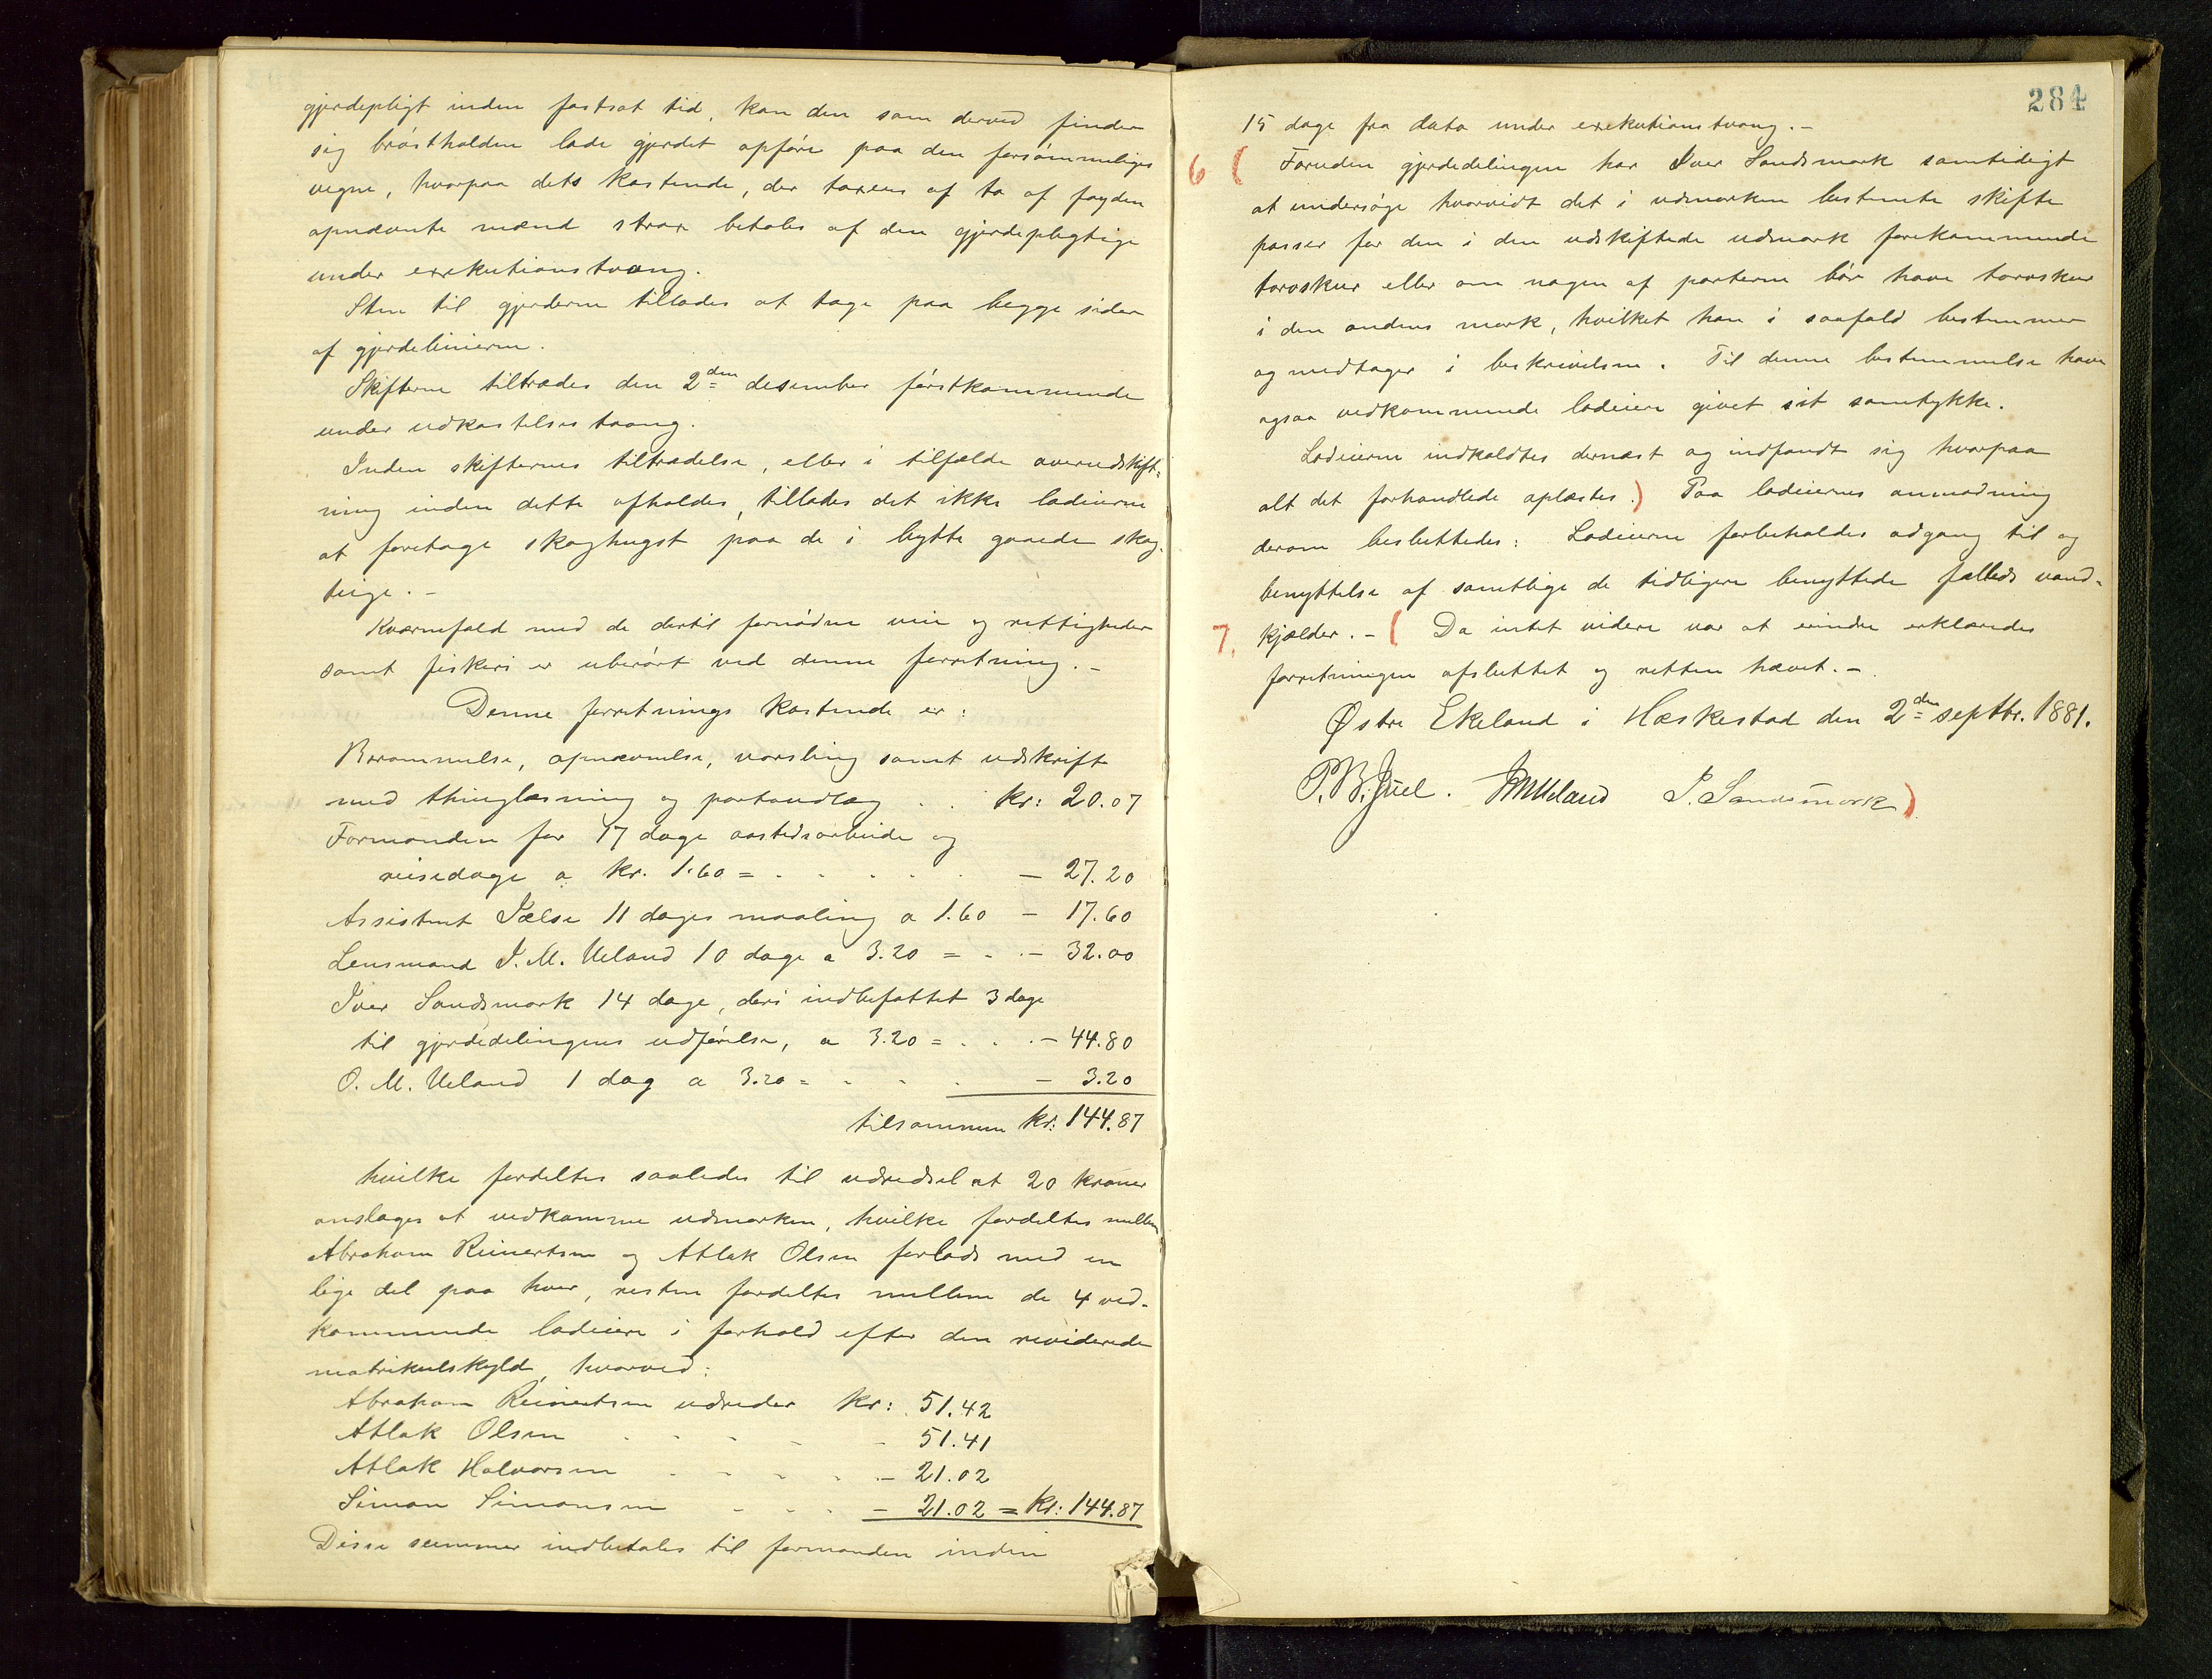 gjerdepligt inden fastsat tid, kan den som derved finder
sig bröstholden lade gjerdet opføre paa den forsömmeliges
vegne, hvorpaa dets kostende, der taxeres af to af fogden
opnævnte mænd strax betales af den gjerdepligtige
under exekutionstvang.
Sten til gjerderne tillades at tage paa begge sider
af gjerdelinierne.
Skifterne tiltrædes den 2den desember førstkommende
under udkastelses tvang.
Inden skifternes tiltrædelse, eller i tilfælde overudskift-
ning inden dette afholdes, tillades det ikke lodeierne
at foretage skoghugst paa de i bytte gaaede skog-
teige. -
Kværnefald med de dertil fornødne veie og rettigheder
samt fiskeri er uberørt ved denne forretning. -
Denne forretnings kostende er:
Berammelse, opnævnelse, varsling samt udskrift
med thinglæsning og portoudlæg . . kr: 20.07
Formanden for 17 dage aastedsarbeide og
reisedage a kr. 1.60 = . . . . . — 27.20
Assistent Pælse 11 dages maaling a 1.60 — 17.60
Lensmand J. M. Ueland 10 dage a 3.20 = . . — 32.00
Iver Sandsmark 14 dage, deri indbefattet 3 dage
til gjerdedelingens udførelse, a 3.20 = . . . — 44.80
O. M. Ueland 1 dag a 3.20 = . . . — 3.20
tilsammen kr: 144.87
hvilke fordeltes saaledes til udredsel at 20 kroner
anslages at vedkomme udmarken, hvilke fordeltes mellem
Abraham Reinertsen og Atlak Olsen forlods med en
lige del paa hver, resten fordeltes mellem de 4 ved-
kommende lodeiere i forhold efter den reviderede
matrikulskyld, hvorved:
Abraham Reinertsen udreder kr: 51.42
Atlak Olsen . . . . . 51.41
Atlak Halvorsen . . . . — 21.02
Simon Simonsen . . . . — 21.02 = kr: 144.87
Disse summer indbetales til formanden inden
284
15 dage fra dato under exekutionstvang. -
6 ( Foruden gjerdedelingen har Iver Sandsmark samtidigt
at undersøge hvorvidt det i udmarken bestemte skifte
passer for den i den udskiftede udmark forekommende
torvskur eller om nogen af parterne bör have torvskur
i den andens mark, hvilket han i saafald bestemmer
og medtager i beskrivelsen. Til denne bestemmelse have
ogsaa vedkommende lodeiere givet sit samtykke.
Lodeierne indkaldtes dernæst og indfandt sig hvorpaa
alt det forhandlede oplæstes.) Paa lodeiernes anmodning
derom besluttedes: Lodeierne forbeholdes adgang til og
benyttelse af samtlige de tidligere benyttede fælleds vand-
7. kjælder. - ( Da intet videre var at erindre erklæredes
forretningen afsluttet og retten hævet. -
Østre Ekeland i Hæskestad den 2den septbr. 1881.
P. B. Juel. JMUeland I. Sandsmark )